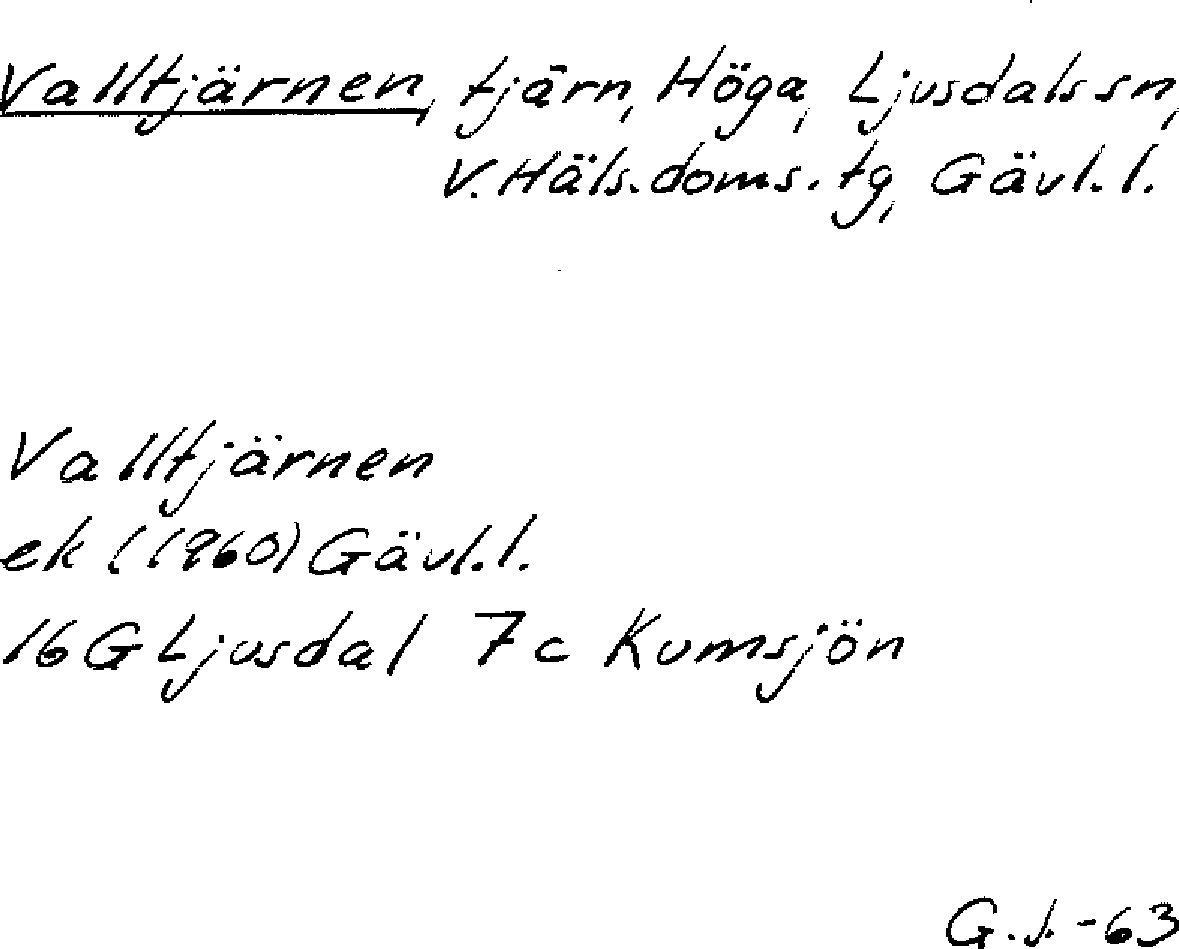 Valltjärnen, tjärn, Höga, Ljusdals sn,
V. Häls. doms. tg, Gävl. l.
Valltjärnen
ek (1960) Gävl. l.
16G Ljusdal 7c Kumsjön
G.J. -63